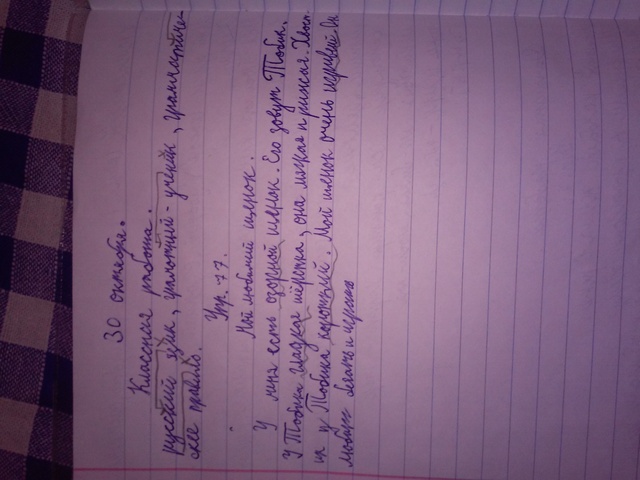 30 октября.
Классная работа.
русский язык, грамотный - ученик, грамматиче-
ское правило.
Упр. 77.
Мой любимый щенок.
У меня есть озорной щенок. Его зовут Тобик.
У Тобика гладкая шёрстка, она мягкая и рыжая. Хвост
у Тобика короткий. Мой щенок очень игривый. Он
любит бегать и играть